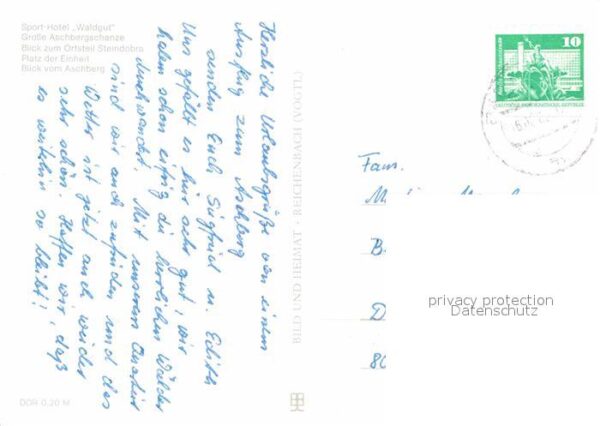 Sport-Hotel „Waldgut"
Große Aschbergschanze
Blick zum Ortsteil Steindobra
Platz der Einheit
Blick vom Aschberg
Herzliche Urlaubsgrüße von einem
Ausflug zum Aschberg
senden Euch Sigfried u. Edith
Uns gefällt es hier sehr gut, wir
haben schon eifrig die herrlichen Wälder
durchwandert. Mit unserem Quartier
sind wir auch zufrieden und das
Wetter ist jetzt auch wieder
sehr schön. Hoffen wir, daß
es weiterhin so bleibt!
BILD UND HEIMAT · REICHENBACH (VOGTL)
DDR 0,20 M
10
DEUTSCHE DEMOKRATISCHE REPUBLIK
Fam.
B
D
80
privacy protection
Datenschutz